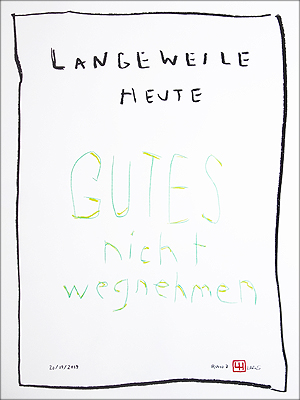 LANGEWEILE
HEUTE
GUTES
nicht
wegnehmen